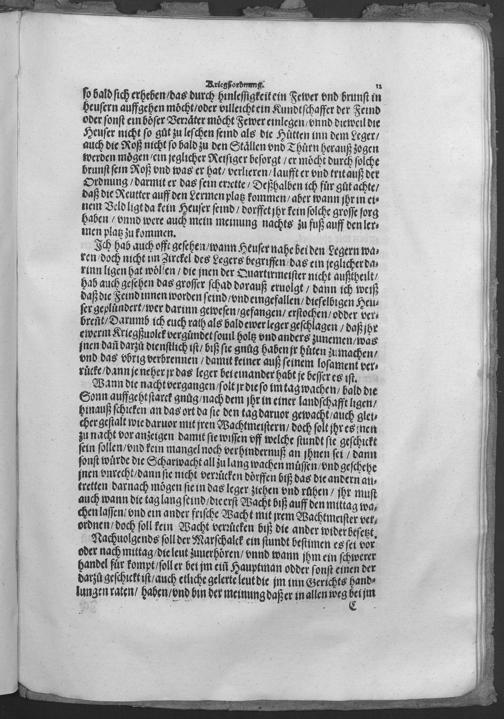 Kriegßordnung. 12
so bald sich erheben/das durch hinlessigkeit ein Fewer vnd brunst in
heusern auffgehen möcht/oder villeicht ein Kundtschaffer der Feind
oder sonst ein böser Verräter möcht Fewer einlegen/vnnd dieweil die
Heuser nicht so gůt zu leschen seind als die Hütten inn dem Leger/
auch die Roß nicht so bald zu den Ställen vnd Thürn herauß zogen
werden mögen/ein jeglicher Reisiger besorgt/er möcht durch solche
brunst sein Roß vnd was er hat/verlieren/laufft er vnd trit auß der
Ordnung/darmit er das sein errette/Deßhalben ich für gůt achte/
daß die Reutter auff den Lermen platz kommen/aber wann ihr in ei-
nem Veld ligt da kein Heuser seind/dorffet jhr kein solche grosse sorg
haben/vnnd were auch mein meinung nachts zu fůß auff den ler-
men platz zu kommen.
Ich hab auch offt gesehen/wann Heuser nahe bei den Legern wa-
ren/doch nicht im Zirckel des Legers begriffen/das ein jeglicher da-
rinn ligen hat wöllen/die jnen der Quartirmeister nicht außtheilt/
hab auch gesehen das grosser schad darauß eruolgt/dann ich weiß
daß die Feind innen worden seind/vnd eingefallen/dieselbigen Heu-
ser geplündert/wer darinn gewesen/gefangen/erstochen/odder ver-
breñt/Darumb ich euch rath/als bald ewer leger geschlagen/daß jhr
ewerm Kriegßuolck vergündet souil holtz vnd anders zunemen/was
jnen dañ darzů dienstlich ist/biß sie gnůg haben jr hüten zu machen/
vnd das vbrig verbrennen/damit keiner auß seinem losament ver-
rücke/dann je neher jr das leger bei einander habt je besser es ist.
Wann die nacht vergangen/solt jr die so im tag wachen/bald die
Sonn auffgeht starck gnůg/nach dem jhr in einer landschafft ligen/
hinauß schicken an das ort da sie den tag daruor gewacht/auch glei-
cher gestalt wie daruor mit jren Wachtmeistern/doch solt jhr es jnen
zu nacht vor anzeigen damit sie wissen vff welche stundt sie geschickt
sein sollen/vnd kein mangel noch verhindernuß an jhnen sei/dann
sonst würde die Scharwacht all zu lang wachen müssen/vnd geschehe
jnen vnrecht/dann sie nicht verrücken dörffen biß das die andern an-
tretten darnach mögen sie in das leger ziehen vnd růhen/jhr must
auch wann die tag lang seind/die erst Wacht biß auff den mittag wa-
chen lassen/vnd ein ander frische Wacht mit jrem Wachtmeister ver-
ordnen/doch soll kein Wacht verrucken biß die ander wider besetzt.
Nachuolgends soll der Marschalck ein stundt bestimen es sei vor
oder nach mittag/die leut zuuerhören/vnnd wann jhm ein schwerer
handel für kompt/soll er bei jm eiñ Hauptman odder sonst einen der
darzů geschickt ist/auch etliche gelerte leut die jm inn Gerichts hand-
lungen raten/haben/vnd bin der meinung daß er in allen weg bei jm
C